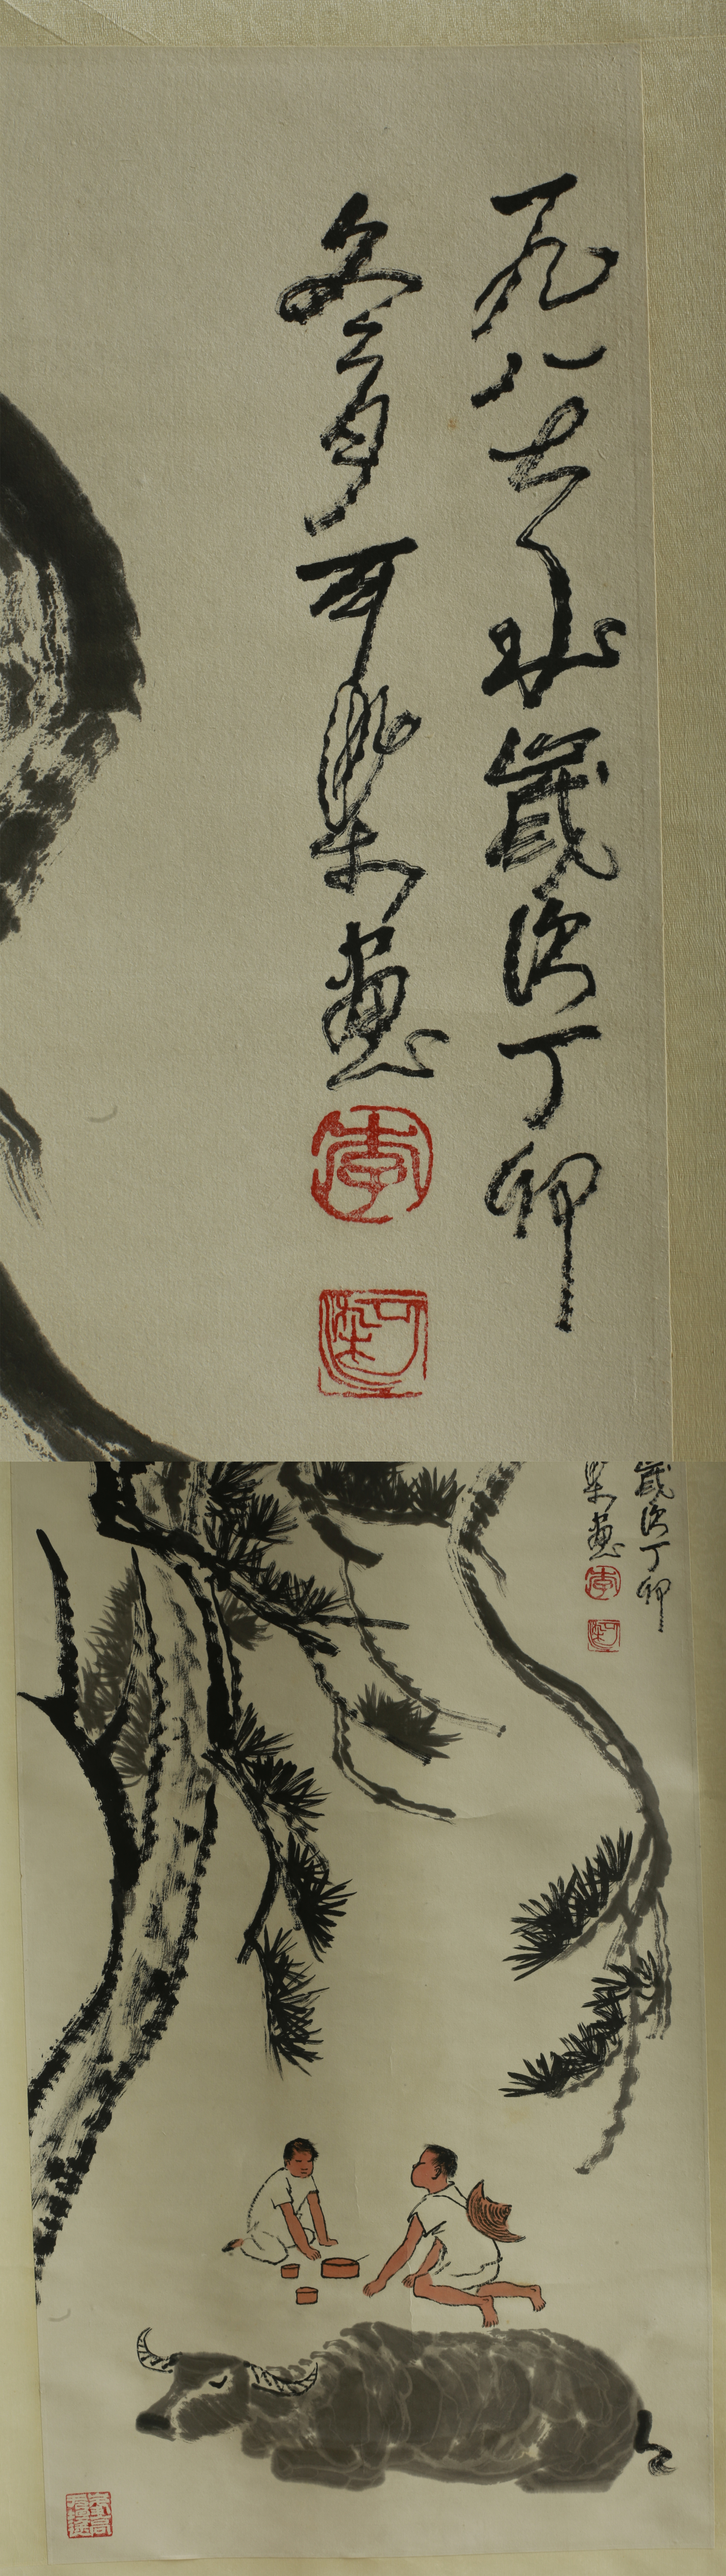 一九八七年歲次丁卯
冬月可染畫
李
可染
歲次丁卯
染畫
李
可染